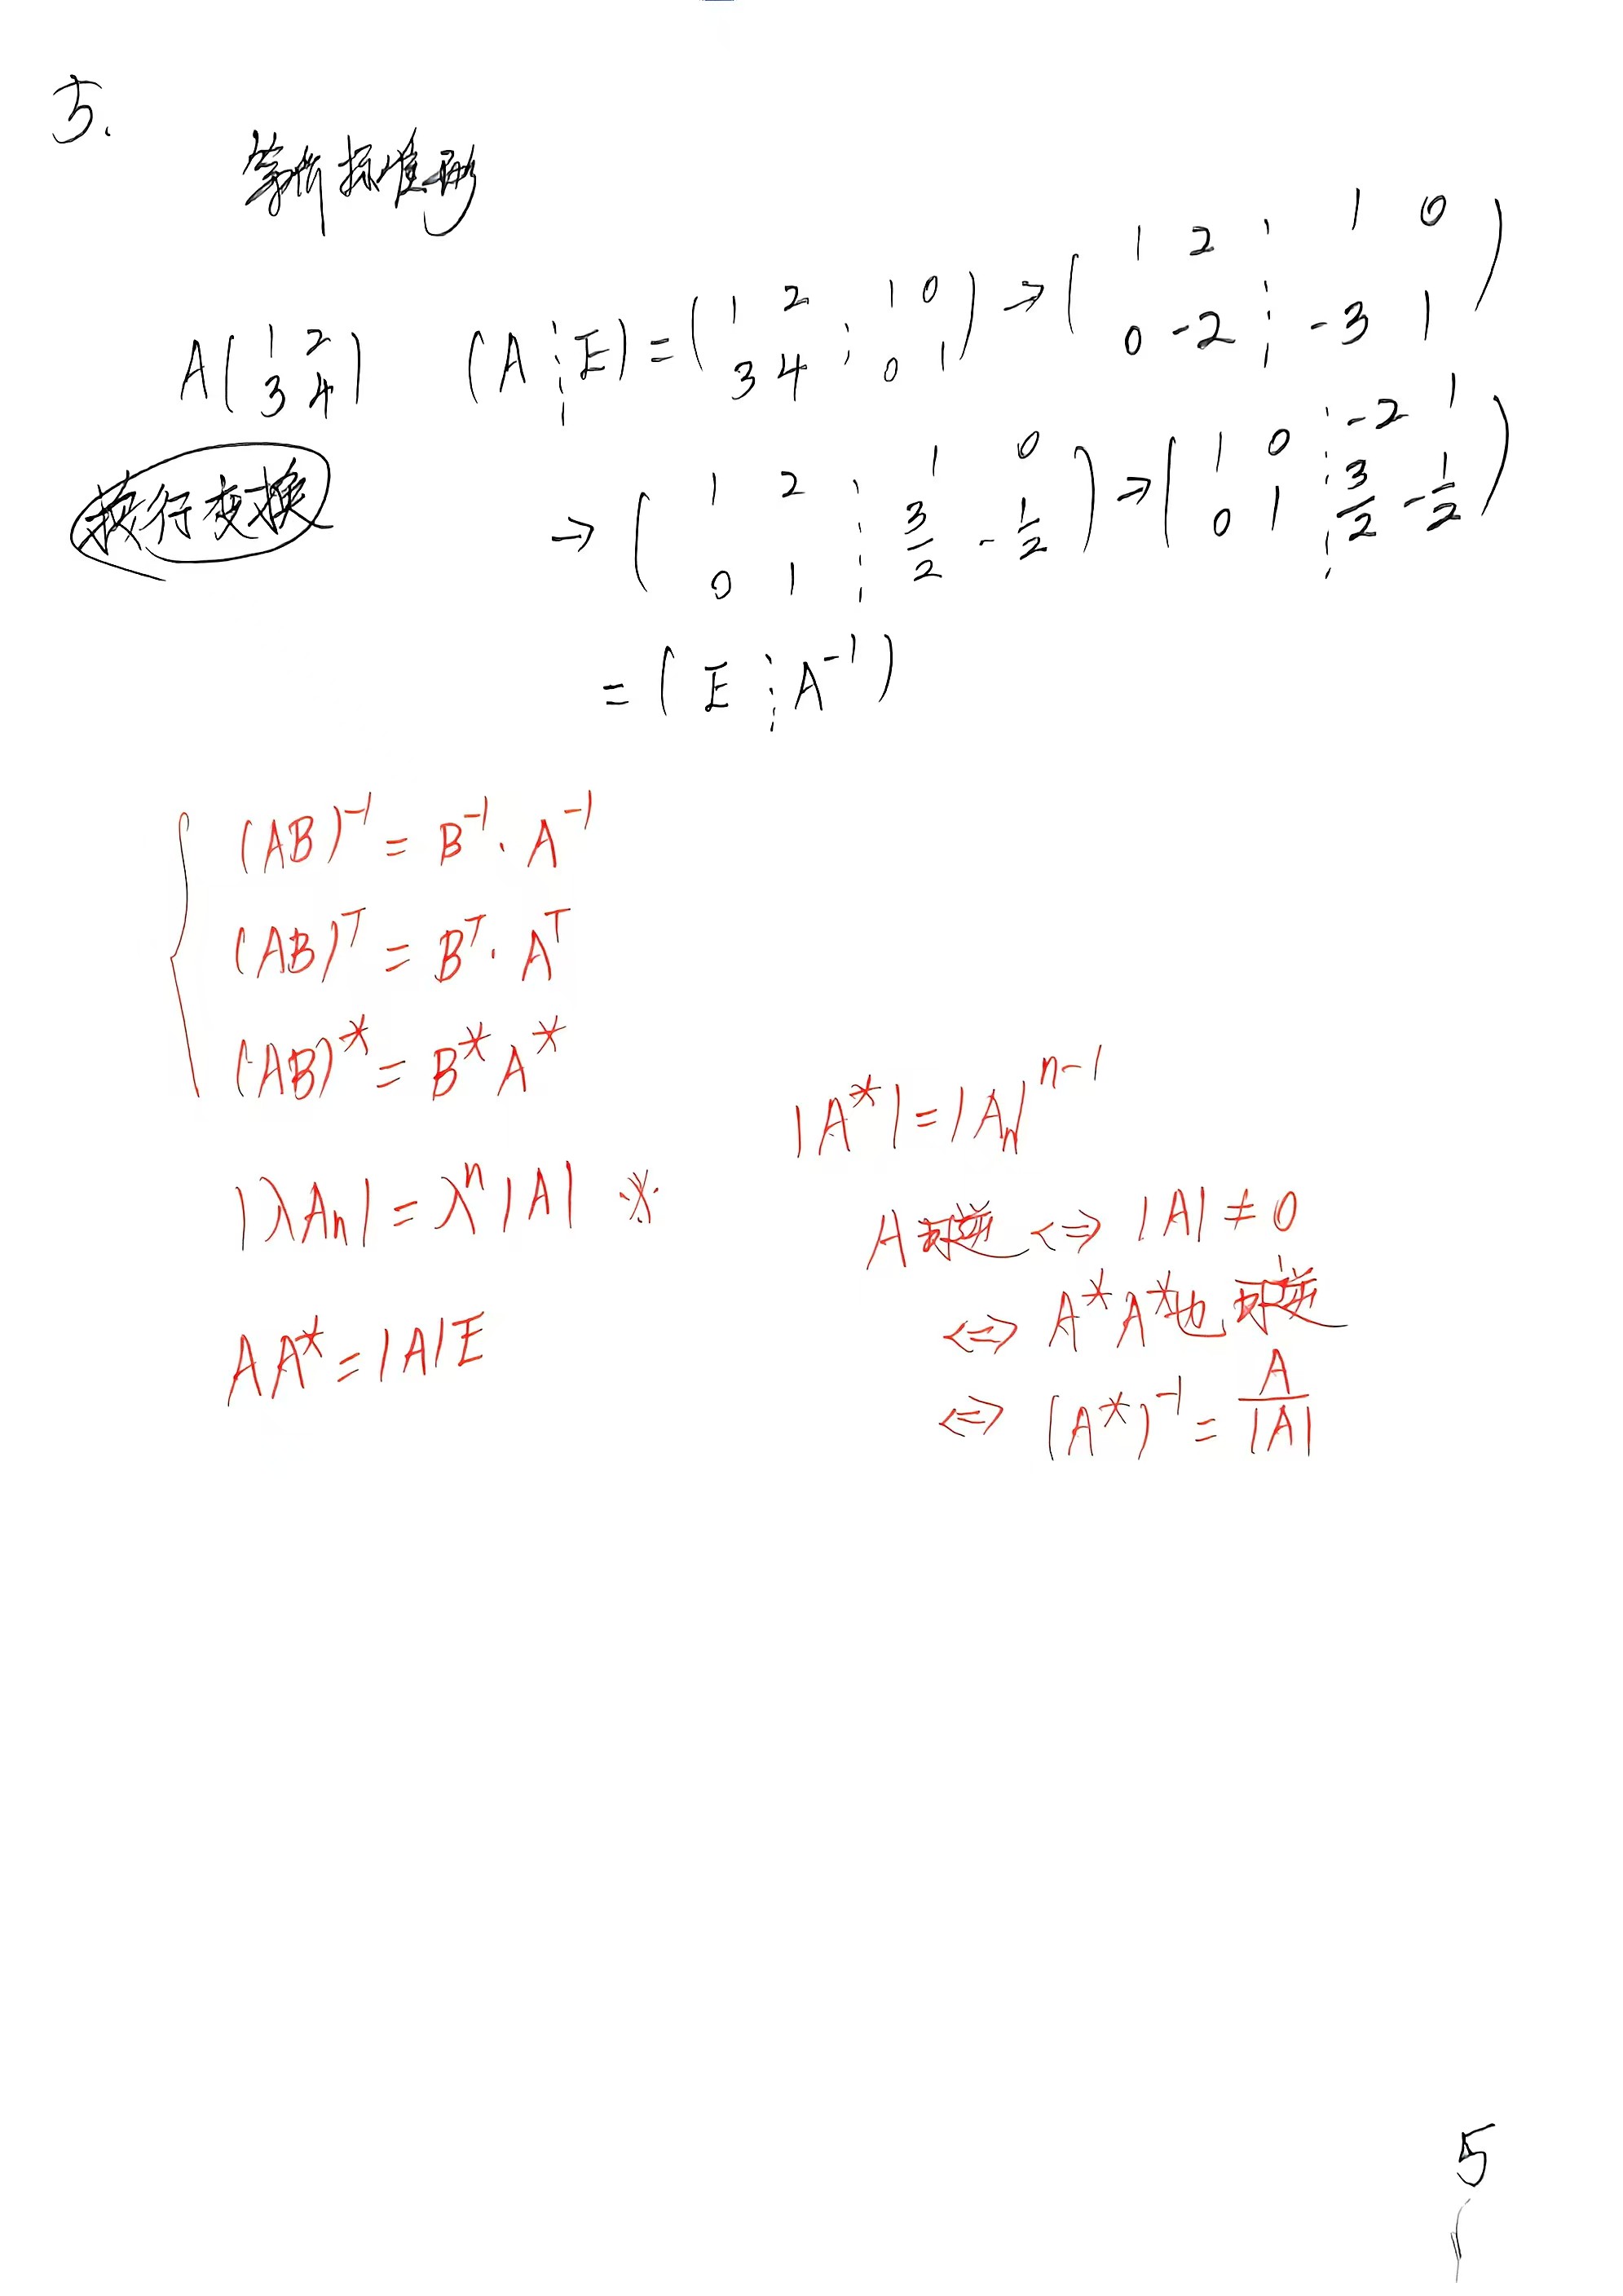 5.
等价标准形
A(1 2 / 3 4) (A ⋮ E) = (1 2 ⋮ 1 0 / 3 4 ⋮ 0 1) → (1 2 ⋮ 1 0 / 0 -2 ⋮ -3 1)
行变换 → (1 2 ⋮ 1 0 / 0 1 ⋮ 3/2 -1/2) → (1 0 ⋮ -2 1 / 0 1 ⋮ 3/2 -1/2)
= (E ⋮ A⁻¹)
(AB)⁻¹ = B⁻¹ · A⁻¹
(AB)ᵀ = Bᵀ · Aᵀ
(AB)* = B* A*
|λAₙ| = λⁿ |A| ※
AA* = |A|E
|A*| = |Aₙ|ⁿ⁻¹
A可逆 <=> |A| ≠ 0
<=> A* A*也可逆
<=> (A*)⁻¹ = A/|A|
5